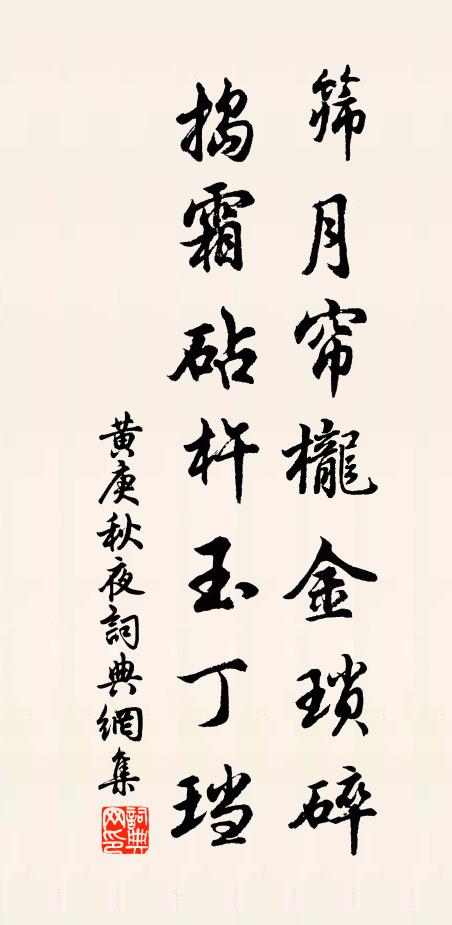 筛月帘櫳金瑣碎
搗霜砧杵玉丁珰
黃庚秋夜詞典網集
詞典網印